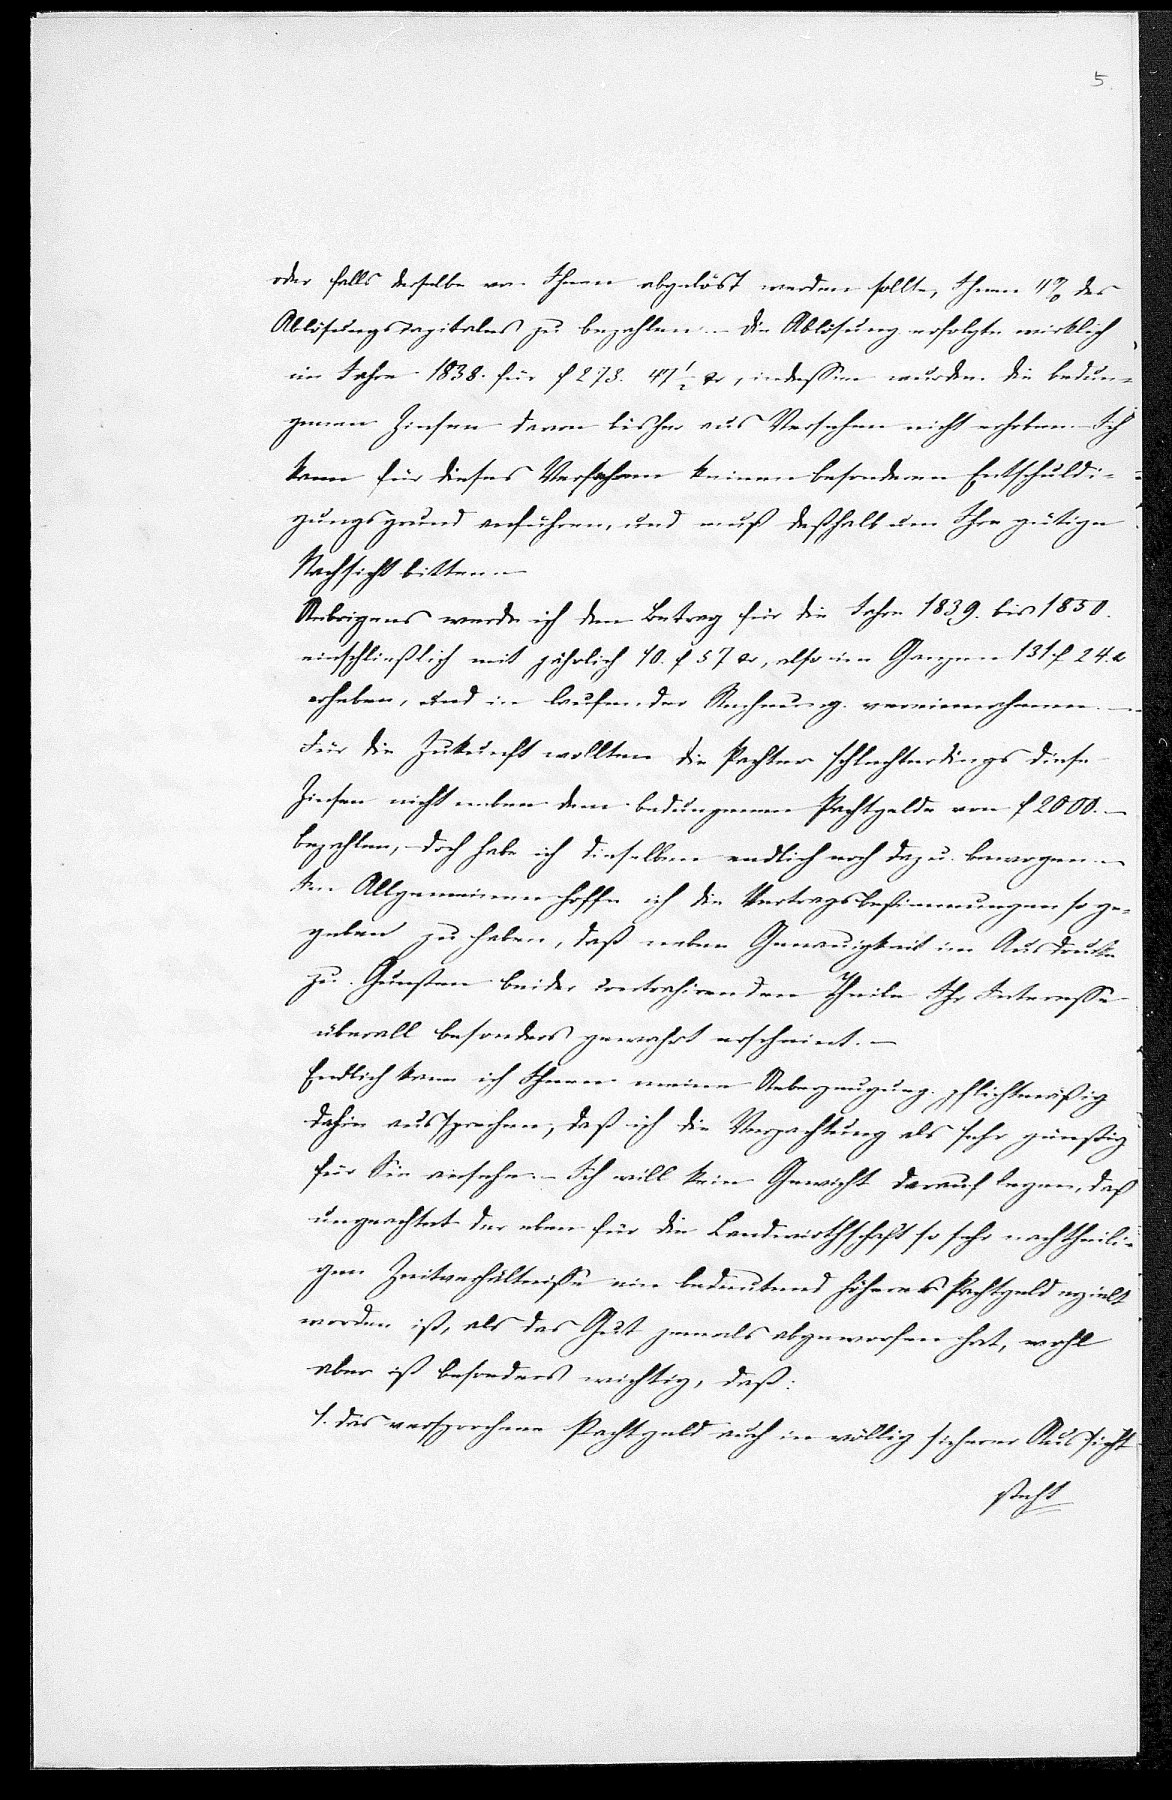 5.
oder falls derselbe von Ihnen abgelöst werden sollte, Ihnen 4% des
Ablösungscapitales zu bezahlen. – Die Ablösung erfolgte wirklich
im Jahre 1838. für f 273. 47 1/2 kr, indessen wurden die bedun-
genen Zinsen davon bisher aus Versehen nicht erhoben. Ich
kann für dieses Versehen keinen besonderen Entschuldi-
gungsgrund anführen, und muß deßhalb um Ihre gütige
Nachsicht bitten. –
Uebrigens werde ich den Betrag für die Jahre 1839. bis 1850.
einschließlich mit jährlich 10. f 57 kr, also im Ganzen 131 f 24. kr
erheben, und in laufender Rechnung vereinnahmen. –
Für die Zukunft wollten die Pachter schlechterdings diese
Zinsen nicht neben dem bedungenen Pachtgelde von f 2000. –
bezahlen, doch habe ich dieselben endlich noch dazu bewogen. –
Im Allgemeinen hoffe ich die Vertragsbestimmungen so ge-
geben zu haben, daß neben Genauigkeit im Ausdrucke
zu Gunsten beider contrahirenden Theile Ihr Interesse
überall besonders gewahrt erscheint. –
Endlich kann ich Ihnen meine Ueberzeugung pflichtmäßig
dahin aussprechen, daß ich die Verpachtung als sehr günstig
für Sie ansehe. – Ich will kein Gewicht darauf legen, daß
ungeachtet der eben für die Landwirthschaft so sehr nachtheili-
gen Zeitverhältnisse ein bedeutend höheres Pachtgeld erzielt
worden ist, als das Gut jemals abgeworfen hat, wohl
aber ist besonders wichtig, daß:
1. das versprochene Pachtgeld auch in völlig sicherer Aussicht
steht